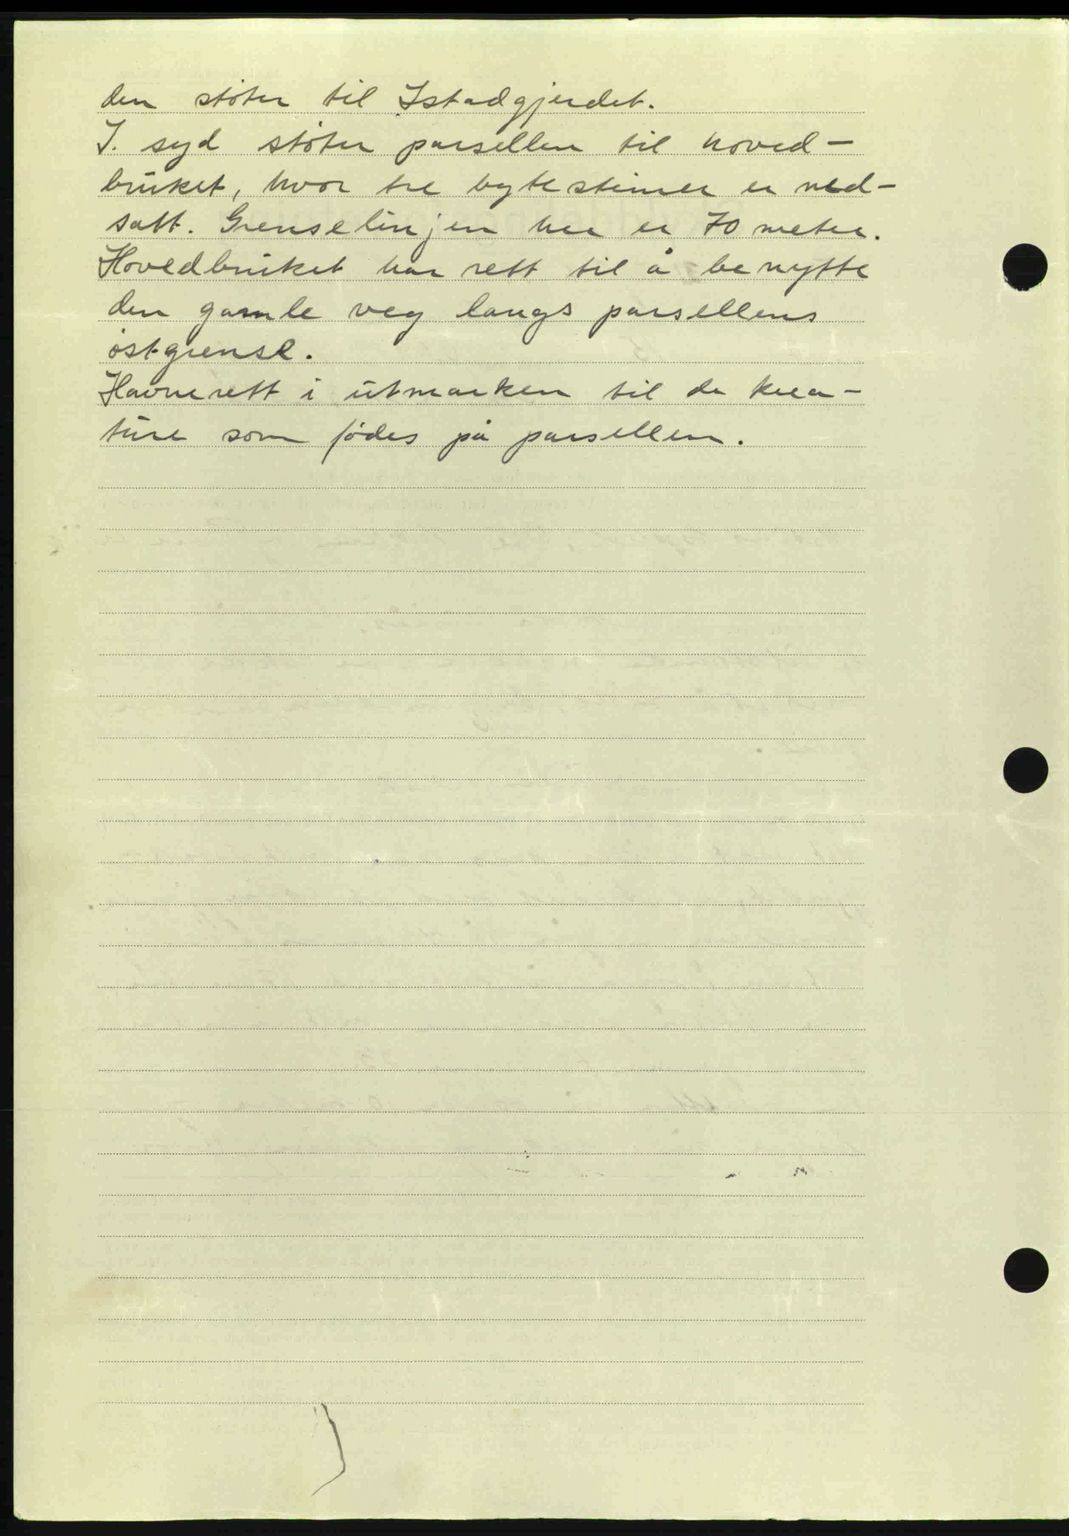 den støter til Istadgjerdet.
I. syd støter parsellen til hoved-
bruket, hvor tre bytesteiner er ned-
satt. Grenselinjen her er 70 meter.
Hovedbruket har rett til å benytte
den gamle veg langs parsellens
østgrense.
Havnerett i utmarken til de krea-
ture som fødes på parsellen.